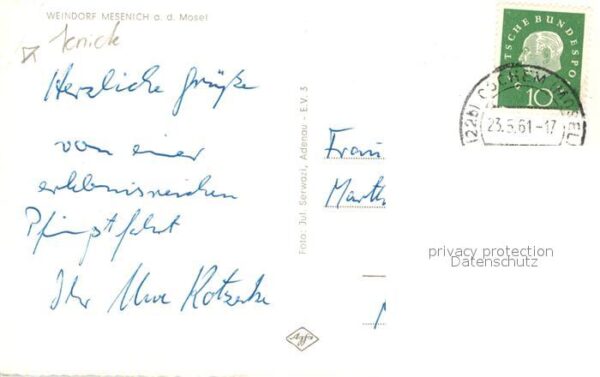 WEINDORF MESENICH a. d. Mosel
Knick
Herzliche Grüße
von einer
erlebnisreichen
Pfingstfahrt
Ihr Uwe
Foto: Jul. Serwazi, Adenau - E.V. 3
Agfa
DEUTSCHE BUNDESPO
10
(22b) COCHEM (MOSEL)
23.5.61-17
Frau
Marth
privacy protection
Datenschutz